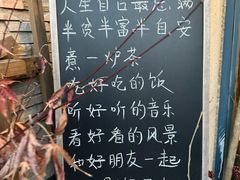 人生自口最忌满
半贫半富半自安
煮一炉茶
吃好吃的饭
听好听的音乐
看好看的风景
和好朋友一起